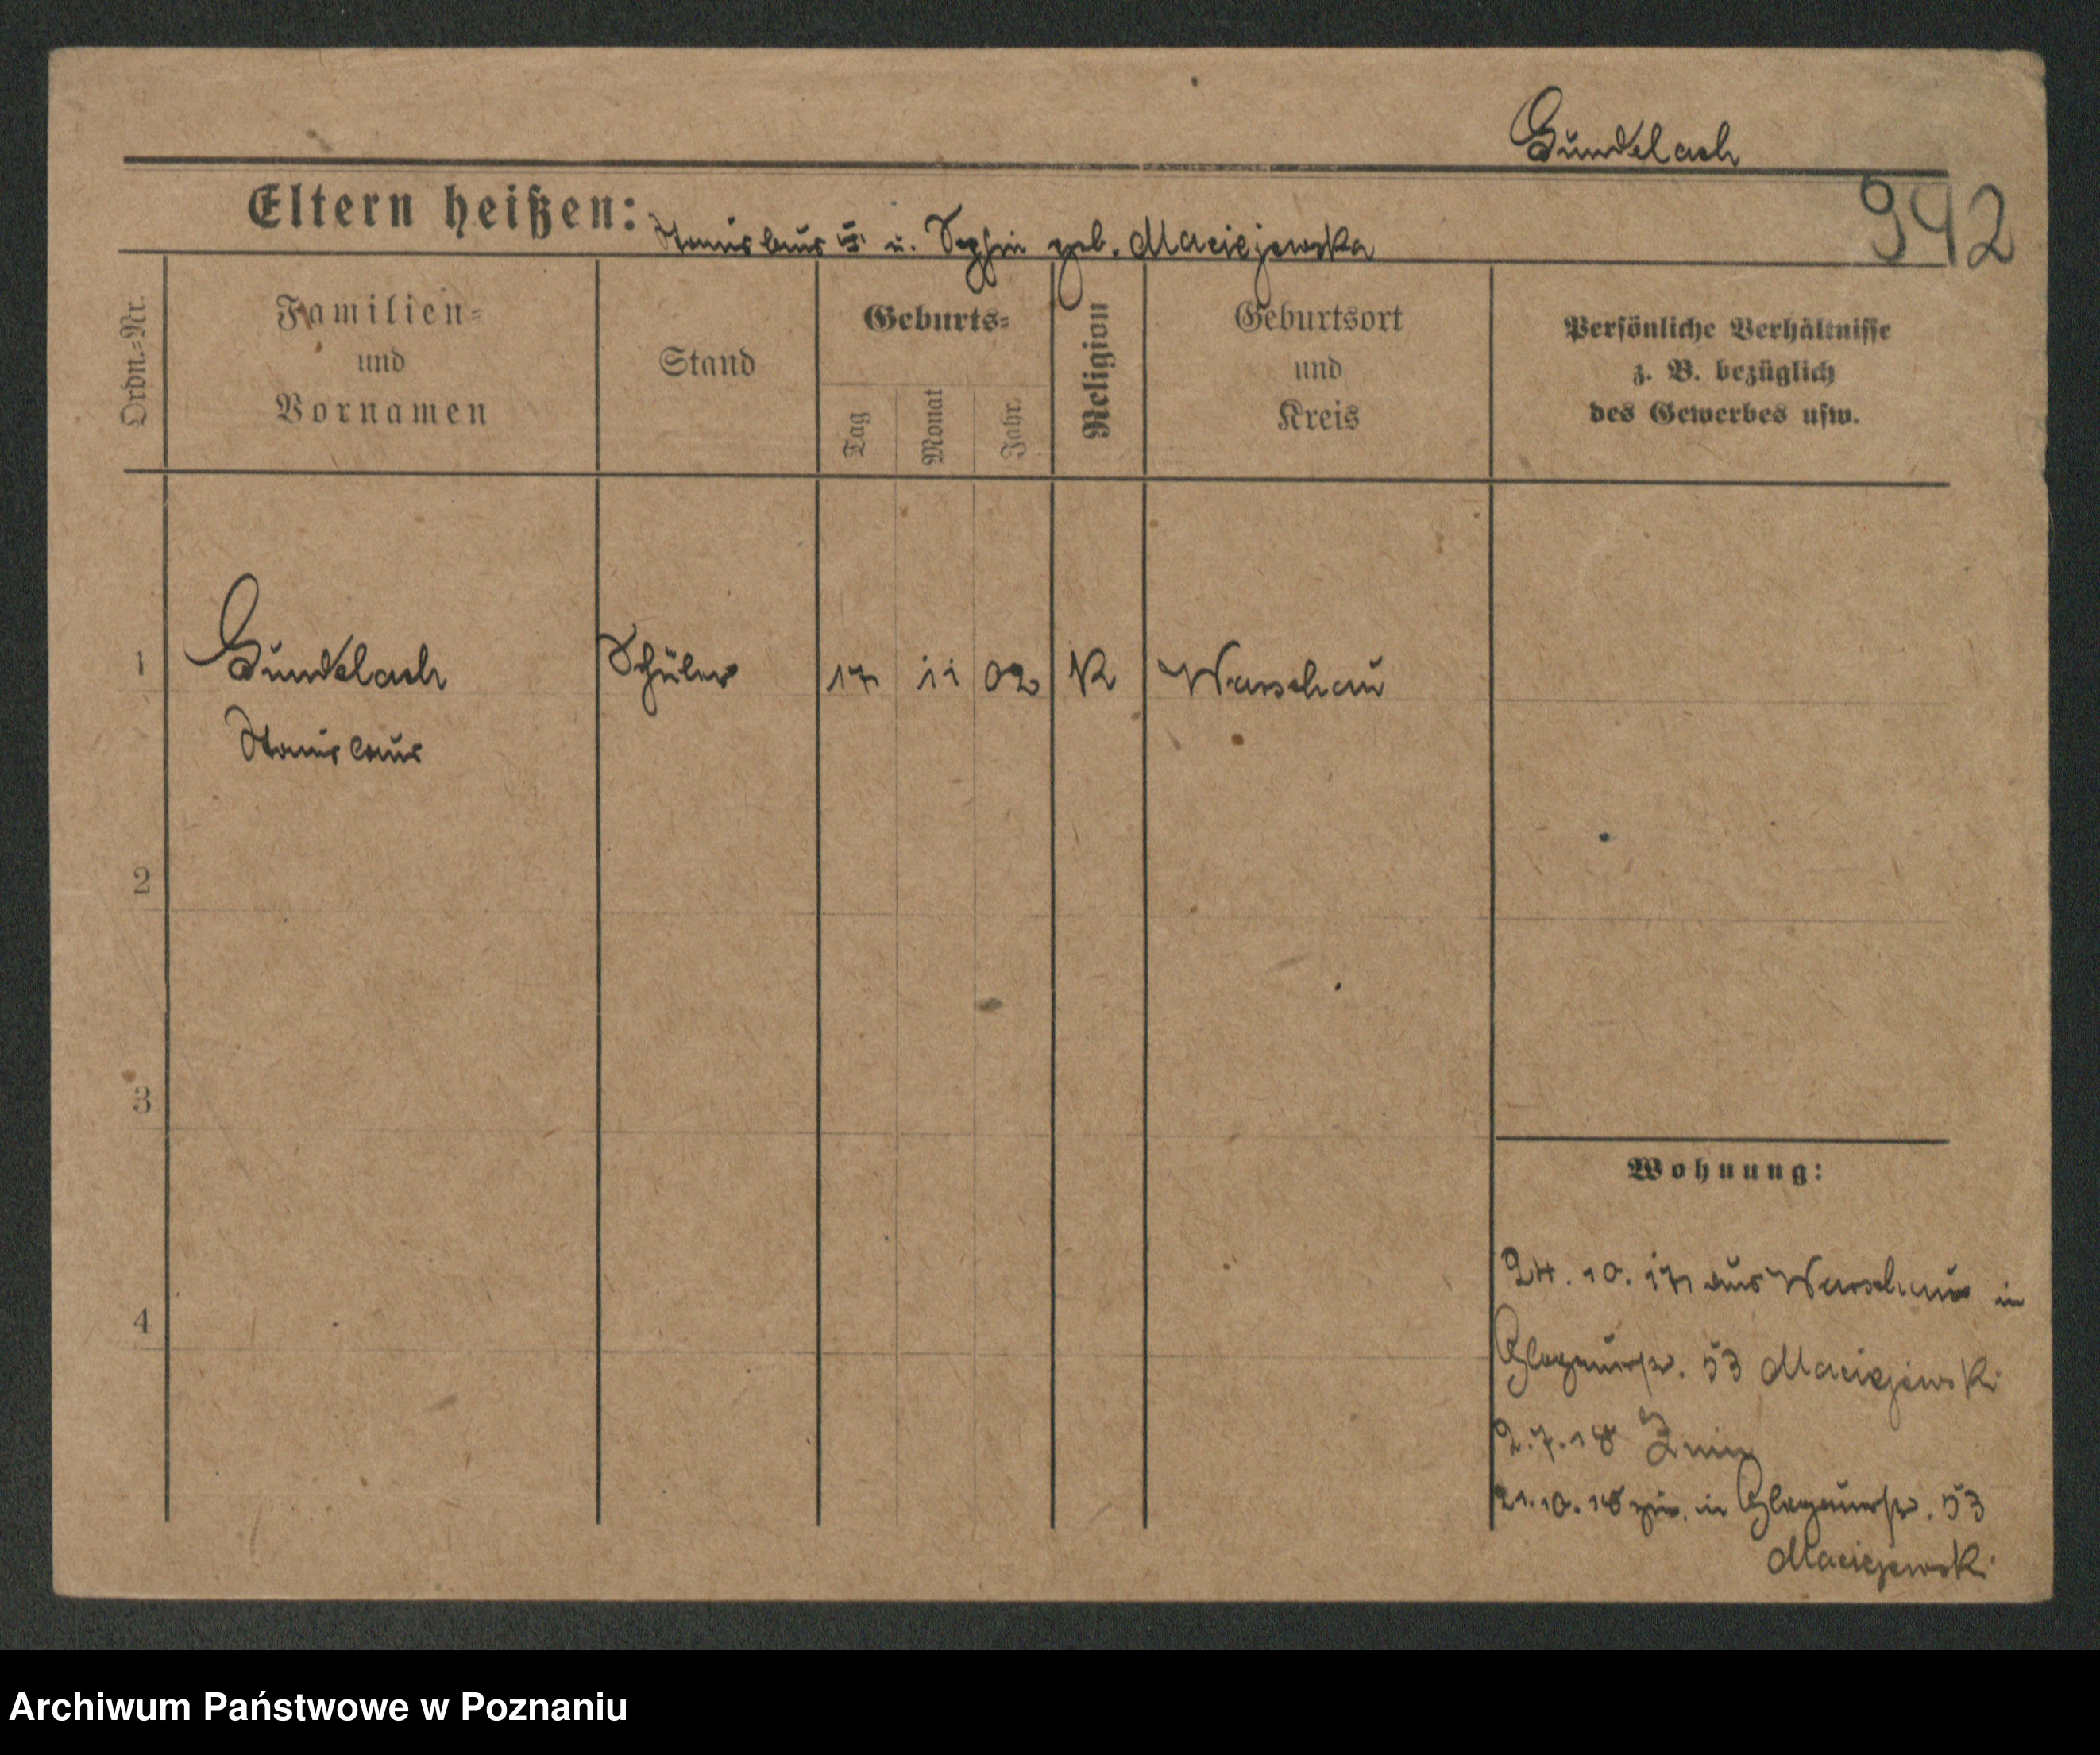 Gundelach
942
Eltern heißen: Stanislaus u. Sophie geb. Maciejewska
Ordn.=Nr.
Familien=
und
Vornamen
Stand
Geburts=
Tag
Monat
Jahr.
Religion
Geburtsort
und
Kreis
Persönliche Verhältnisse
z. B. bezüglich
des Gewerbes usw.
1 Gundelach Schüler 17 11 02 K Warschau
Stanislaus
2
3
4
Wohnung:
24. 10. 17 aus Warschau in
Glogauerstr. 53 Maciejewski
2. 7. 18 Znin
21. 10. 18 zur. in Glogauerstr. 53
Maciejewski
Archiwum Państwowe w Poznaniu